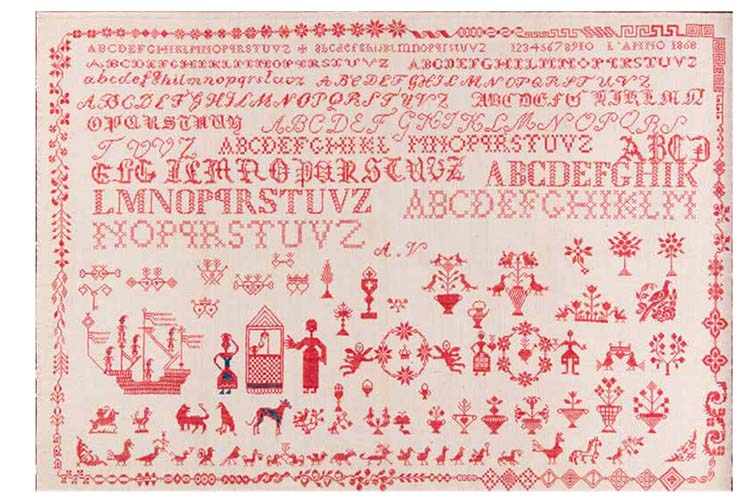 ABCDEFGHIKLMNOPQRSTUVZ ✠ abcdefghijklmnopqrstuvz 12345678910 L'ANNO 1868
ABCDEFGHIKLMNOPQRSTUVZ ABCDEFGHILMNOPQRSTUVZ
abcdefghilmnopqrstuvz ABCDEFGHILMNOPQRSTUVZ
ABCDEFGHILMNOPQRSTUVZ ABCDEFGHIKLMN
OPQRSTUVZ ABCDEFGHIKLMNOPQRS
TUVZ ABCDEFGHIKL MNOPQRSTUVZ ABCD
EFGHILMNOPQRSTUVZ ABCDEFGHIK
LMNOPQRSTUVZ ABCDEFGHIKLM
NOPQRSTUVZ
A.V